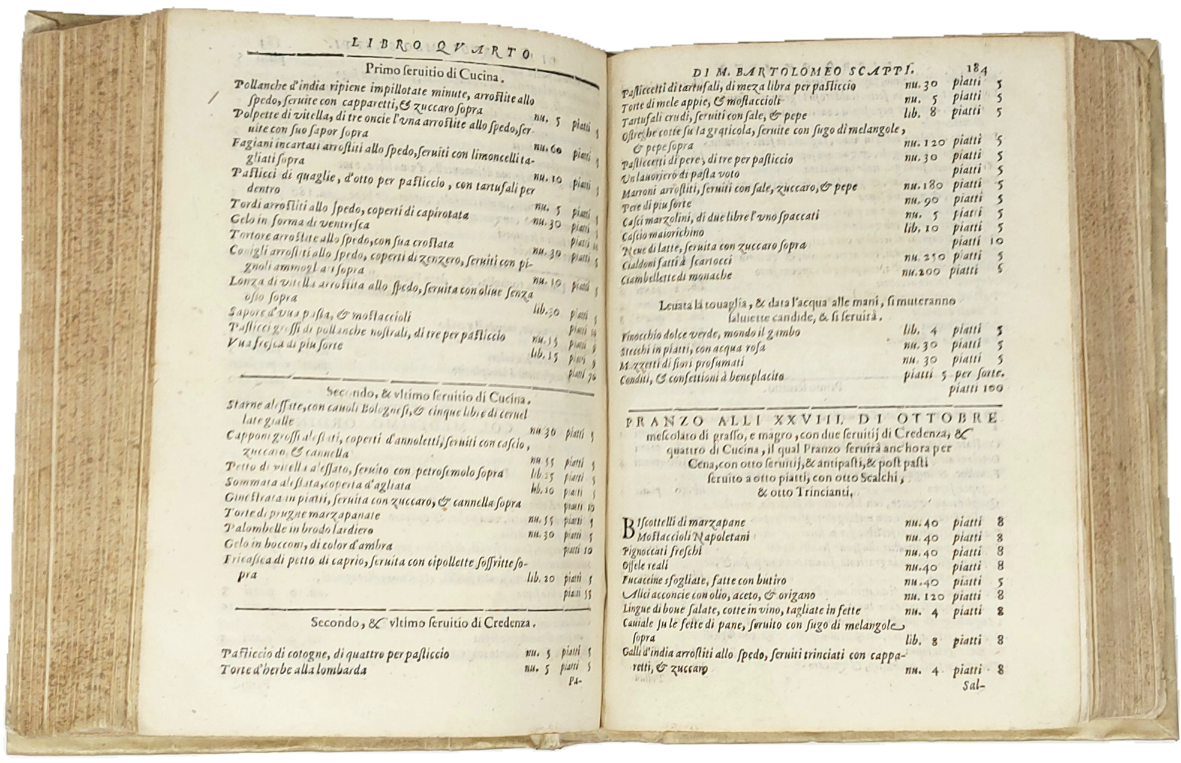 LIBRO QVARTO
Primo seruitio di Cucina.
Pollanche d'india ripiene impillotate minute, arrostite allo
spedo, seruite con capparetti, & zuccaro sopra nu. 5 piatti 5
Polpette di vitella, di tre oncie l'vna arrostite allo spedo, ser-
uite con suo sapor sopra nu. 60 piatti 5
Fagiani incartati arrostiti allo spedo, seruiti con limoncelli ta-
gliati sopra nu. 10 piatti 5
Pasticci di quaglie, d'otto per pasticcio, con tartufali per
dentro nu. 5 piatti 5
Tordi arrostiti allo spedo, coperti di capirotata nu. 30 piatti
Gelo in forma di ventresca piatti 10
Tortore arrostite allo spedo, con sua crostata nu. 30 piatti 5
Conigli arrostiti allo spedo, coperti di zenzero, seruiti con pi-
gnoli ammogliati sopra nu. 10 piatti 5
Lonza di vitella arrostita allo spedo, seruita con oliue senza
osso sopra lib. 30 piatti
Sapore d'vua pasta, & mostaccioli piatti 10
Pasticci grossi di pollanche nostrali, di tre per pasticcio nu. 15 piatti
Vua fresca di piu sorte lib. 15 piatti
piatti 70
Secondo, & vltimo seruitio di Cucina.
Starne alessite, con cauoli Bolognesi, & cinque libre di ceruel
late gialle nu 30 piatti 5
Capponi grossi alessati, coperti d'annoletti, seruiti con cascio,
zuccaro, & cannella nu. 15 piatti 5
Petto di vitella alessato, seruito con petrosemolo sopra lib. 25 piatti 5
Sommata alessata, coperta d'agliata lib. 10 piatti
Ginestrata in piatti, seruita con zuccaro, & cannella sopra piatti 10
Torte di prugne marzapanate nu. 55 piatti 5
Palombelle in brodo lardiero nu. 30 piatti 5
Gelo in bocconi, di color d'ambra piatti 10
Fricassea di petto di caprio, seruita con cipollette soffritte so-
pra lib. 20 piatti 5
piatti 55
Secondo, & vltimo seruitio di Credenza.
Pasticcio di cotogne, di quattro per pasticcio nu. 5 piatti 5
Torte d'herbe alla lombarda nu. 5 piatti 5
Pa-
DI M. BARTOLOMEO SCAPPI. 184
Pasticcetti di tartufali, di meza libra per pasticcio nu. 30 piatti 5
Torte di mele appie, & mostaccioli nu. 5 piatti 5
Tartufali crudi, seruiti con sale, & pepe lib. 8 piatti 5
Ostreghe cotte su la graticola, seruite con sugo di melangole,
& pepe sopra nu. 120 piatti 5
Pasticcetti di pere, di tre per pasticcio nu. 30 piatti 5
Un lauoriero di pasta voto piatti 5
Marroni arrostiti, seruiti con sale, zuccaro, & pepe nu. 180 piatti 5
Pere di piu sorte nu. 90 piatti 5
Casci marzolini, di due libre l'vno spaccati nu. 5 piatti 5
Cascio maiorichino lib. 10 piatti 5
Neue di latte, seruita con zuccaro sopra piatti 10
Cialdoni fatti à scartocci nu. 250 piatti 5
Ciambellette di monache nu. 200 piatti 5
Leuata la touaglia, & data l'acqua alle mani, si muteranno
saluiette candide, & si seruirà.
Finocchio dolce verde, mondo il gambo lib. 4 piatti 5
Stecchi in piatti, con acqua rosa nu. 30 piatti 5
Mazzetti di fiori profumati nu. 30 piatti 5
Conditi, & confettioni à beneplacito piatti 5 per sorte.
piatti 100
PRANZO ALLI XXVIII. DI OTTOBRE
mescolato di grasso, e magro, con due seruitij di Credenza, &
quattro di Cucina, il qual Pranzo seruirà anc'hora per
Cena, con otto seruitij, & antipasti, & post pasti
seruito a otto piatti, con otto Scalchi,
& otto Trincianti.
BIscottelli di marzapane nu. 40 piatti 8
Mostaccioli Napoletani nu. 40 piatti 8
Pignoccati freschi nu. 40 piatti 8
Offele reali nu. 40 piatti 8
Fucaccine sfogliate, fatte con butiro nu. 40 piatti 5
Alici acconcie con olio, aceto, & origano nu. 120 piatti 8
Lingue di boue salate, cotte in vino, tagliate in fette nu. 4 piatti 8
Cauiale su le fette di pane, seruito con sugo di melangole
sopra lib. 8 piatti 8
Galli d'india arrostiti allo spedo, seruiti trinciati con cappa-
retti, & zuccaro nu. 4 piatti 8
Sal-